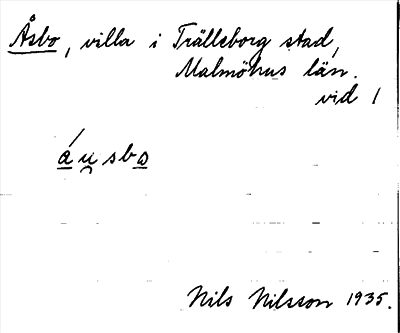 Åsbo, villa i Trälleborg stad,
Malmöhus län.
vid 1
áu̯sbo
Nils Nilsson 1935.